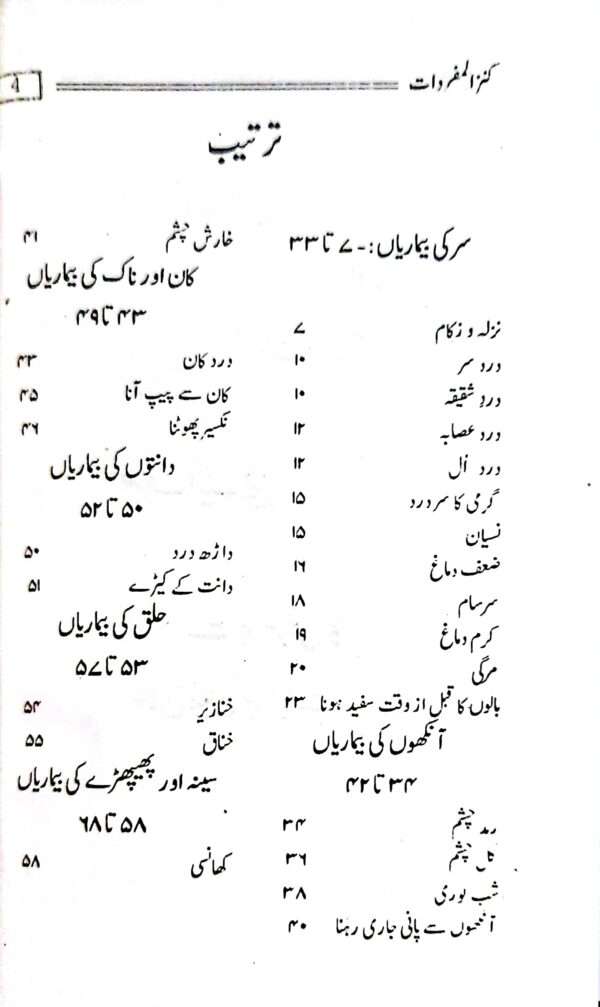 کنزالمفردات
4
ترتیب
سر کی بیماریاں:۔ ۷ تا ۳۳
نزلہ و زکام ۷
درد سر ۱۰
دردِ شقیقہ ۱۰
درد عصابہ ۱۲
درد اُل ۱۲
گرمی کا سر درد ۱۵
نسیان ۱۵
ضعف دماغ ۱۶
سرسام ۱۸
کرم دماغ ۱۹
مرگی ۲۰
بالوں کا قبل از وقت سفید ہونا ۲۳
آنکھوں کی بیماریاں
۳۴ تا ۴۲
رمد چشم ۳۴
چشم ۳۶
شب کوری ۳۸
آنکھوں سے پانی جاری رہنا ۴۰
خارش چشم ۴۱
کان اور ناک کی بیماریاں
۴۳ تا ۴۹
درد کان ۴۳
کان سے پیپ آنا ۴۵
نکسیر پھوٹنا ۴۶
دانتوں کی بیماریاں
۵۰ تا ۵۲
داڑھ درد ۵۰
دانت کے کیڑے ۵۱
حلق کی بیماریاں
۵۳ تا ۵۷
خنازیر ۵۴
خناق ۵۵
سینہ اور پھیپھڑے کی بیماریاں
۵۸ تا ۶۸
کھانسی ۵۸